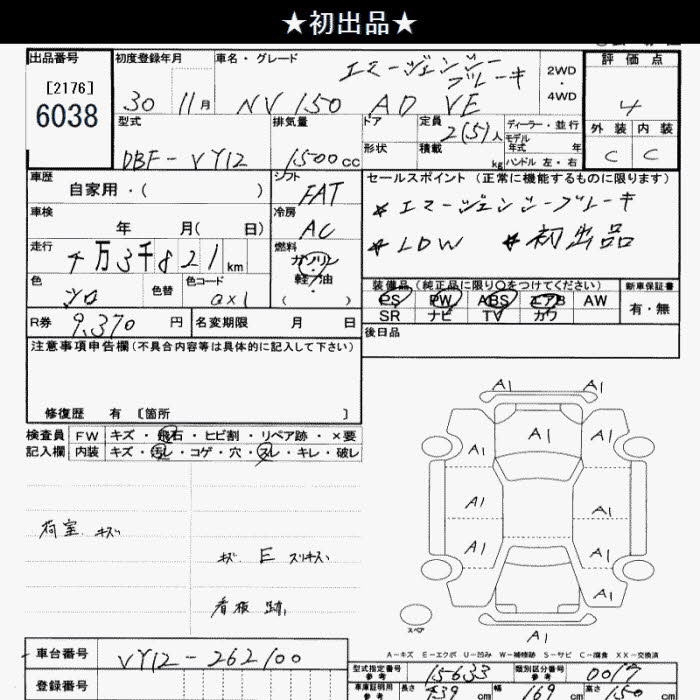 ★初出品★
出品番号
[2176]
6038
初度登録年月
30 11月
車名・グレード
エマージェンシー
ブレーキ
NV 150 AD VE
2WD
・
4WD
評価点
4
外装 内装
C C
型式
DBF-VY12
排気量
1500cc
ドア
形状
定員
2(5)人
積載
kg
ディーラー・並行
モデル
年式 年
ハンドル 左・右
車歴
自家用・( )
シフト
FAT
車検
年 月( 日)
冷房
AC
走行
万3千821km
燃料
ガソリン
軽油
( )
色
シロ
色替
色コード
QX1
R券 9,370円
名変期限 月 日
セールスポイント(正常に機能するものに限ります)
★エマージェンシーブレーキ
★LDW ★初出品
装備品(純正品に限り○をつけてください)
PS PW ABS エアB AW
SR ナビ TV カワ
新車保証書
有・無
後日品
注意事項申告欄(不具合内容等は具体的に記入して下さい)
修復歴 有 〔箇所 〕
検査員
記入欄
FW キズ・飛石・ヒビ割・リペア跡・×要
内装 キズ・汚レ・コゲ・穴・スレ・キレ・破レ
荷室 キズ
キズ E スリキズ
看板 跡
A1 A1
A1 A1 A1
A1 A1
A1 A1
A1
A1
スペア
A-キズ E-エクボ U-凹み W-補修跡 S-サビ C-腐食 XX-交換済
車台番号 VY12-262100
登録番号
型式指定番号
参考
15633
類別区分番号
参考
0017
車庫証明用
参考
長さ 439cm 幅 169cm 高さ 150cm